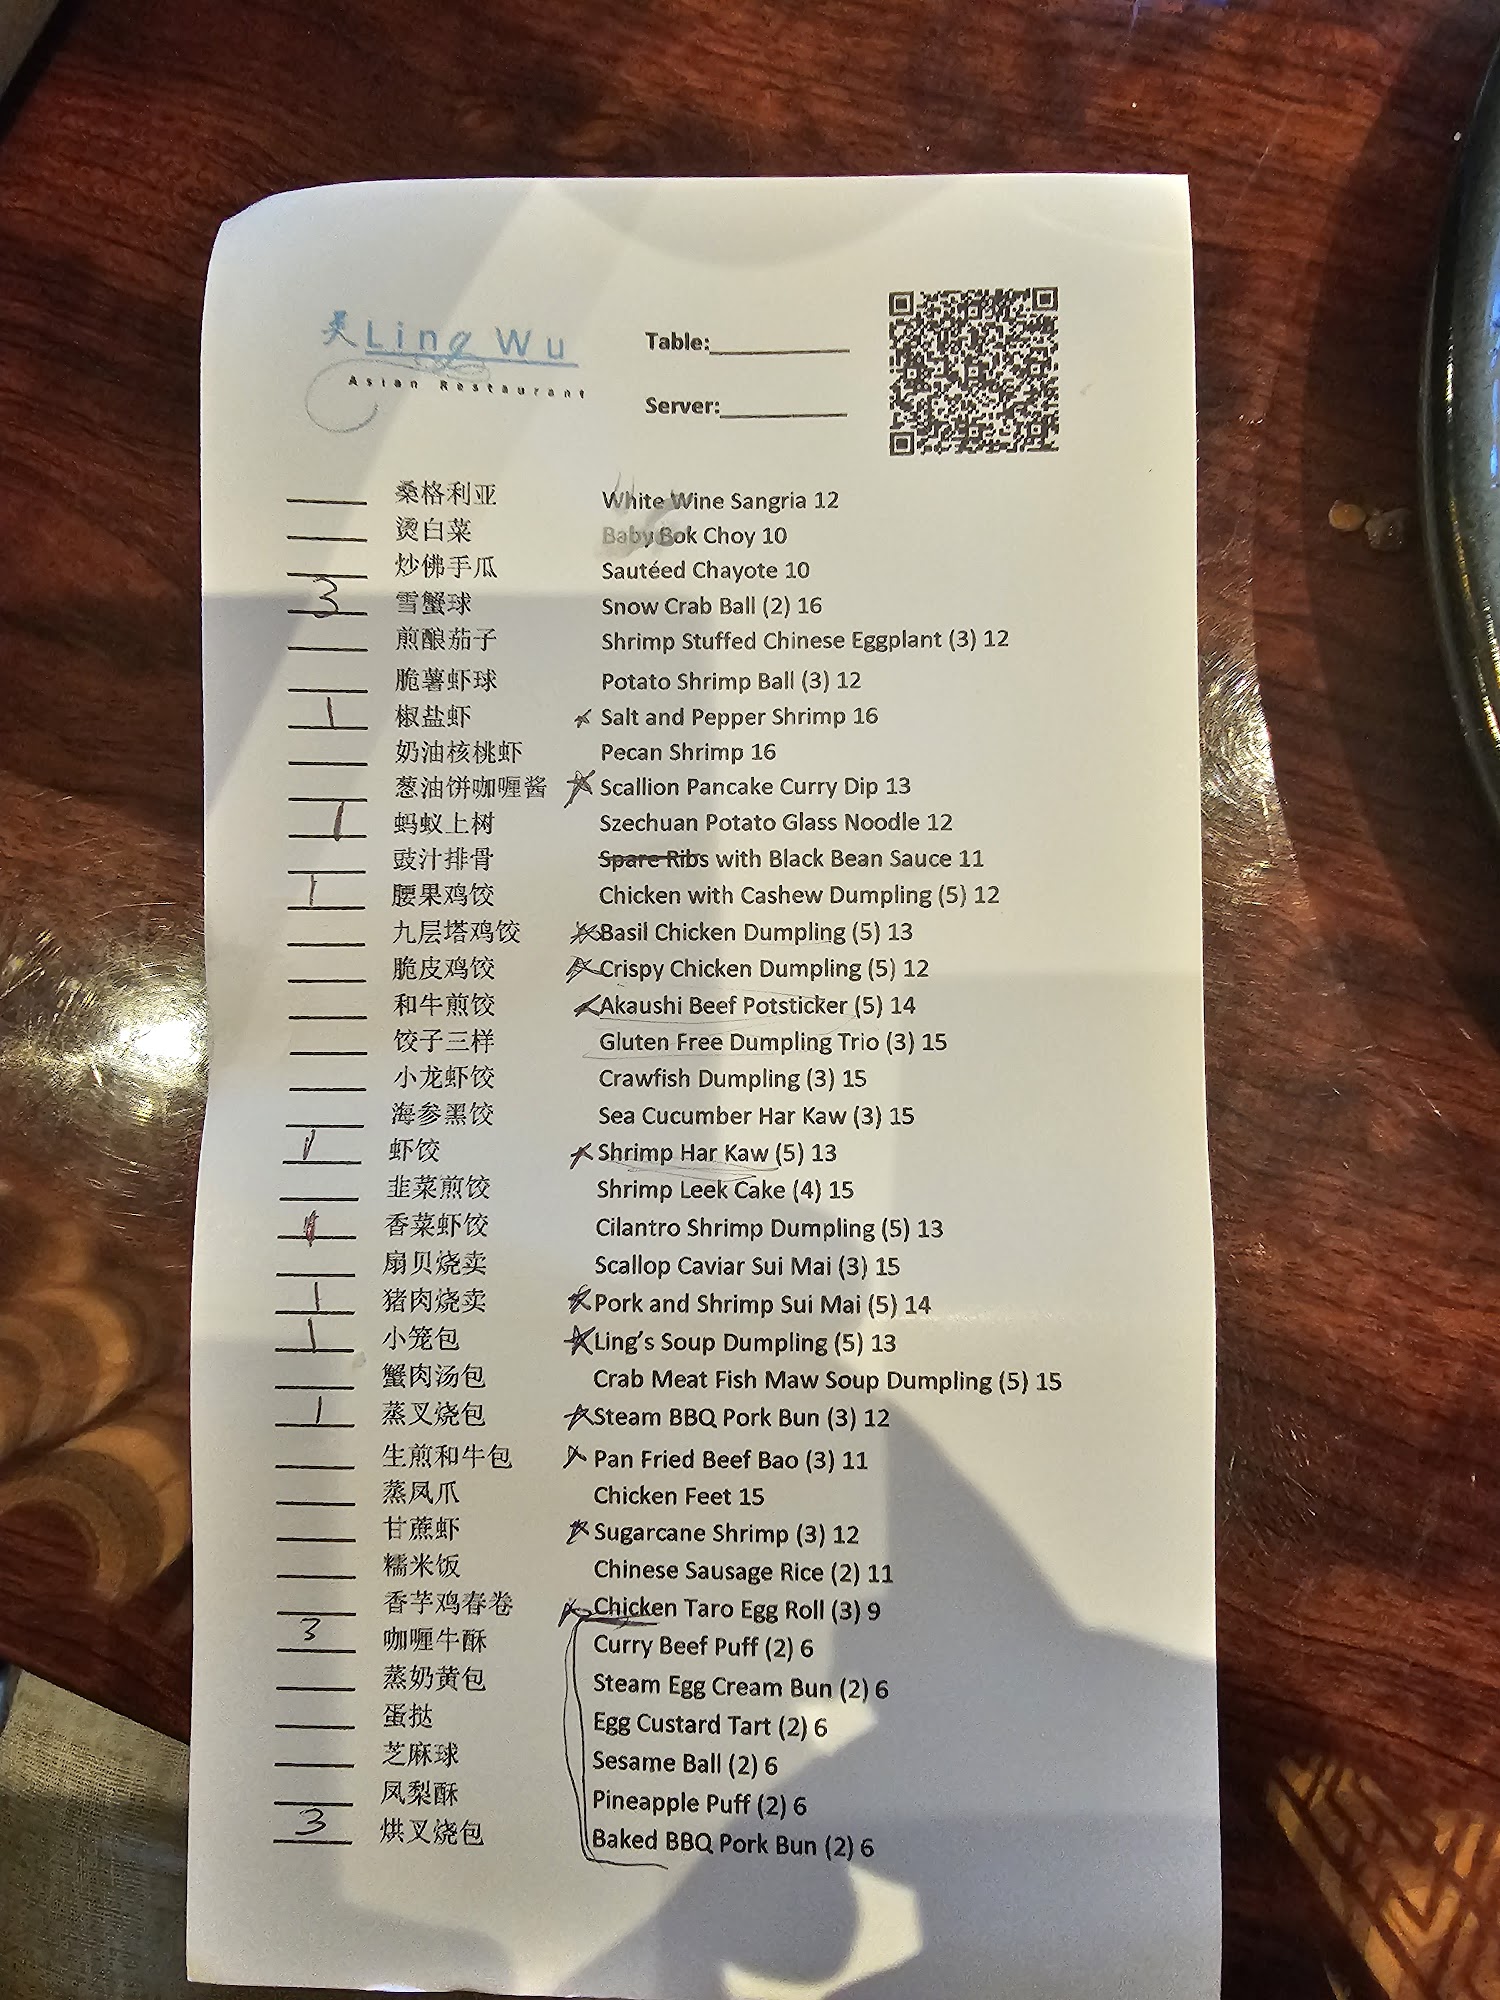 灵 Ling Wu
Asian Restaurant
Table:
Server:
桑格利亚 White Wine Sangria 12
烫白菜 Baby Bok Choy 10
炒佛手瓜 Sautéed Chayote 10
3 雪蟹球 Snow Crab Ball (2) 16
煎酿茄子 Shrimp Stuffed Chinese Eggplant (3) 12
脆薯虾球 Potato Shrimp Ball (3) 12
1 椒盐虾 Salt and Pepper Shrimp 16
奶油核桃虾 Pecan Shrimp 16
葱油饼咖喱酱 Scallion Pancake Curry Dip 13
1 蚂蚁上树 Szechuan Potato Glass Noodle 12
豉汁排骨 Spare Ribs with Black Bean Sauce 11
1 腰果鸡饺 Chicken with Cashew Dumpling (5) 12
九层塔鸡饺 Basil Chicken Dumpling (5) 13
脆皮鸡饺 Crispy Chicken Dumpling (5) 12
和牛煎饺 Akaushi Beef Potsticker (5) 14
饺子三样 Gluten Free Dumpling Trio (3) 15
小龙虾饺 Crawfish Dumpling (3) 15
海参黑饺 Sea Cucumber Har Kaw (3) 15
1 虾饺 Shrimp Har Kaw (5) 13
韭菜煎饺 Shrimp Leek Cake (4) 15
香菜虾饺 Cilantro Shrimp Dumpling (5) 13
扇贝烧卖 Scallop Caviar Sui Mai (3) 15
1 猪肉烧卖 Pork and Shrimp Sui Mai (5) 14
1 小笼包 Ling's Soup Dumpling (5) 13
蟹肉汤包 Crab Meat Fish Maw Soup Dumpling (5) 15
1 蒸叉烧包 Steam BBQ Pork Bun (3) 12
生煎和牛包 Pan Fried Beef Bao (3) 11
蒸凤爪 Chicken Feet 15
甘蔗虾 Sugarcane Shrimp (3) 12
糯米饭 Chinese Sausage Rice (2) 11
香芋鸡春卷 Chicken Taro Egg Roll (3) 9
3 咖喱牛酥 Curry Beef Puff (2) 6
蒸奶黄包 Steam Egg Cream Bun (2) 6
蛋挞 Egg Custard Tart (2) 6
芝麻球 Sesame Ball (2) 6
凤梨酥 Pineapple Puff (2) 6
3 烘叉烧包 Baked BBQ Pork Bun (2) 6